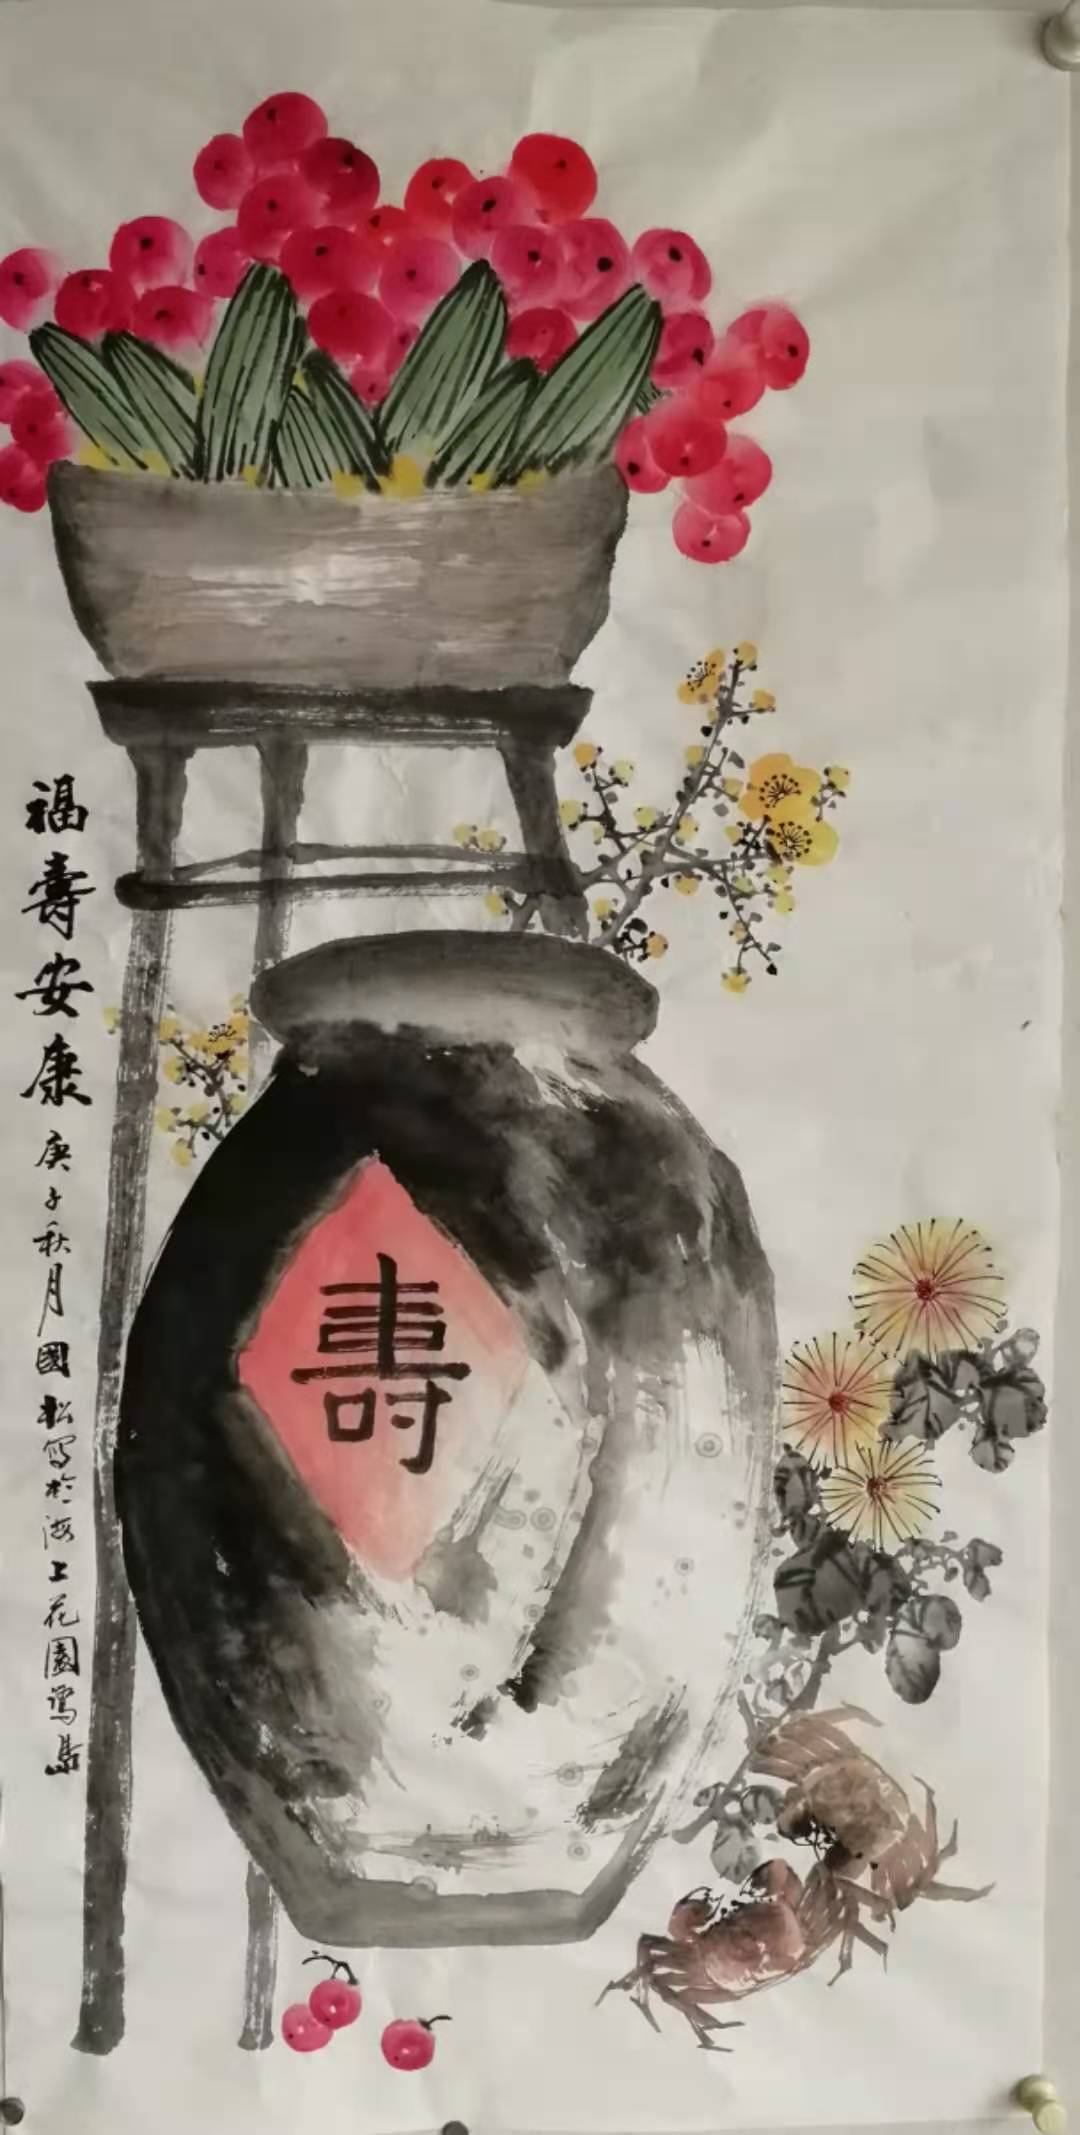 福壽安康 庚子秋月國松寫於海上花園鹭島
壽